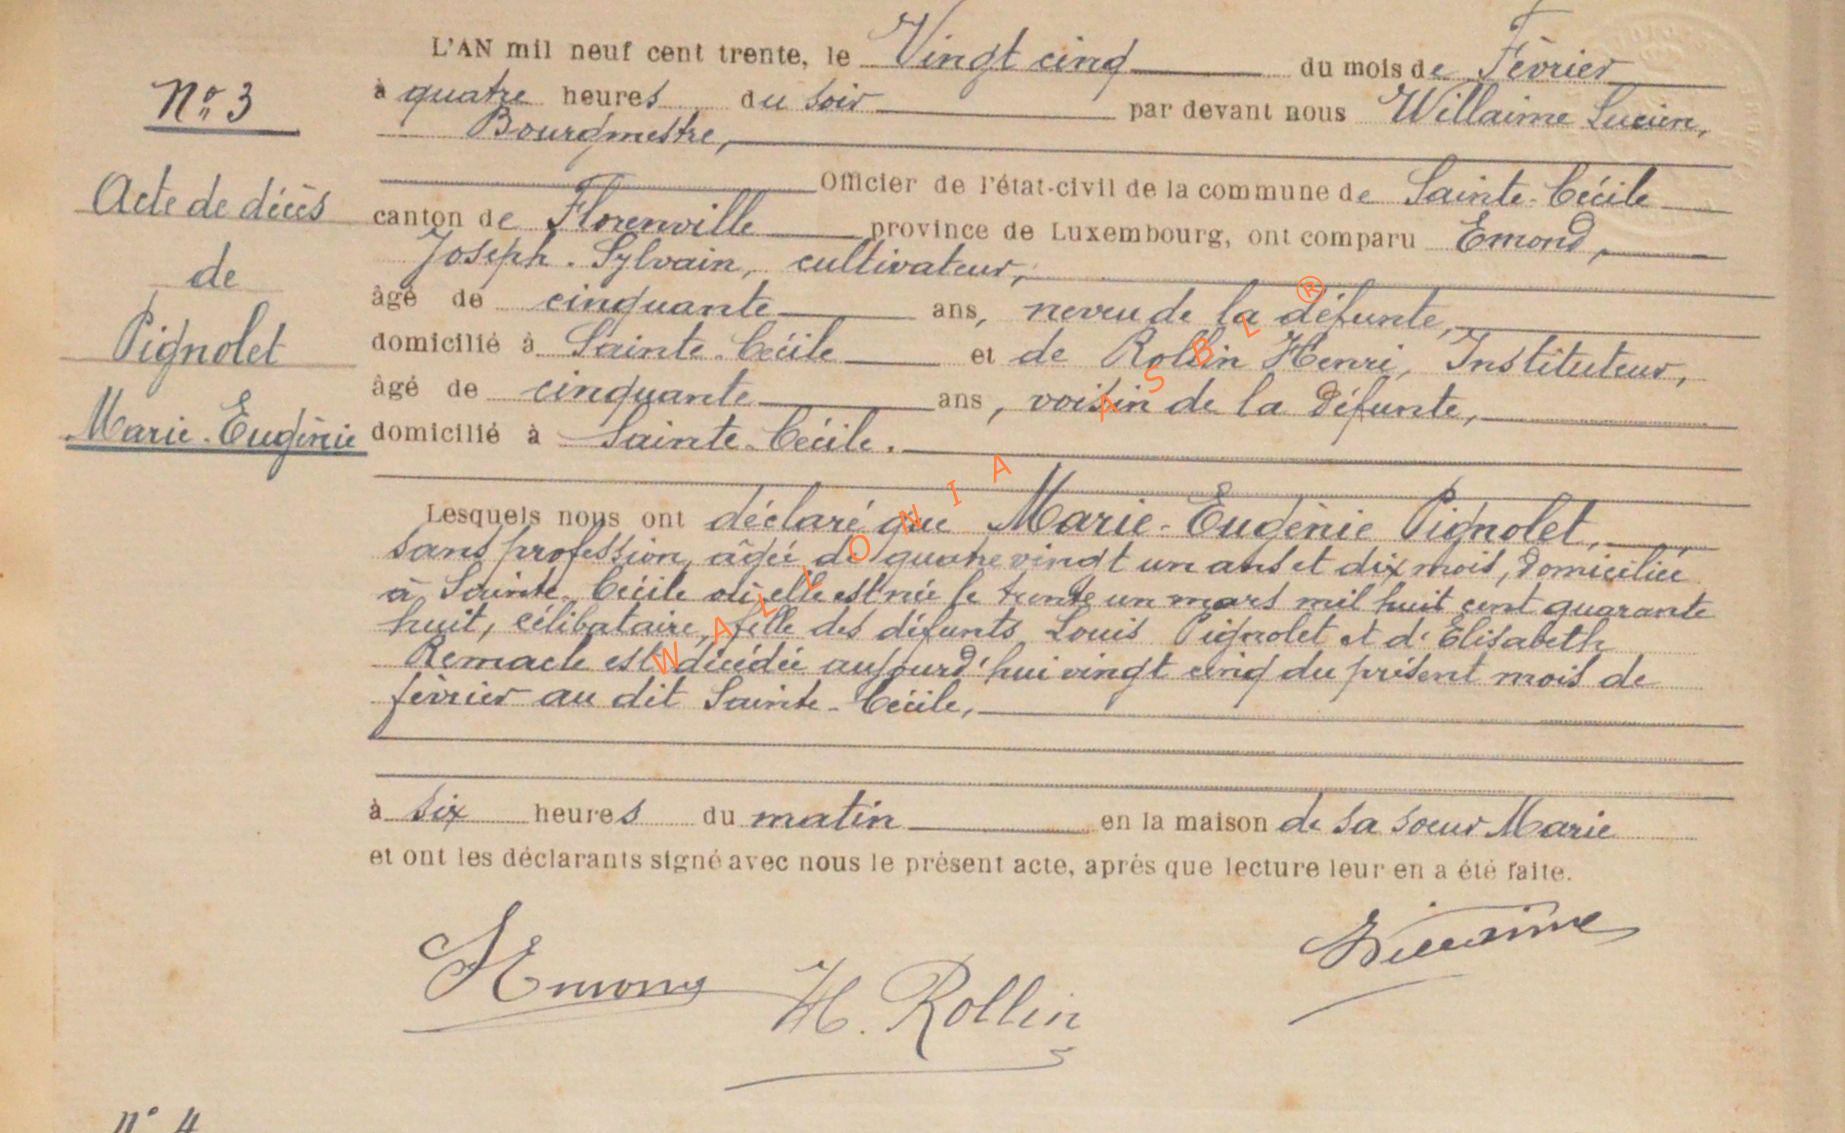 L'AN mil neuf cent trente, le Vingt cinq du mois de Février
N° 3
à quatre heures du soir par devant nous Willaime Lucien,
Bourgmestre,
Officier de l'état-civil de la commune de Sainte-Cécile
Acte de décès
canton de Florenville province de Luxembourg, ont comparu Emond,
Joseph-Sylvain, cultivateur,
de
âgé de cinquante ans, neveu de la défunte,
Pignolet
domicilié à Sainte-Cécile et de Rollin Henri, Instituteur,
âgé de cinquante ans, voisin de la défunte,
Marie-Eugènie
domicilié à Sainte-Cécile.
Lesquels nous ont déclaré que Marie-Eugènie Pignolet,
sans profession, âgée de quatre vingt un ans et dix mois, domiciliée
à Sainte-Cécile où elle est née le trente un mars mil huit cent quarante
huit, célibataire, fille des défunts Louis Pignolet et d'Elisabeth
Remacle est décédée aujourd'hui vingt cinq du présent mois de
février au dit Sainte-Cécile,
à six heures du matin en la maison de sa soeur Marie
et ont les déclarants signé avec nous le présent acte, après que lecture leur en a été faite.
JEmond H. Rollin Willaime
n° 4
WALLONIA ASBL ®